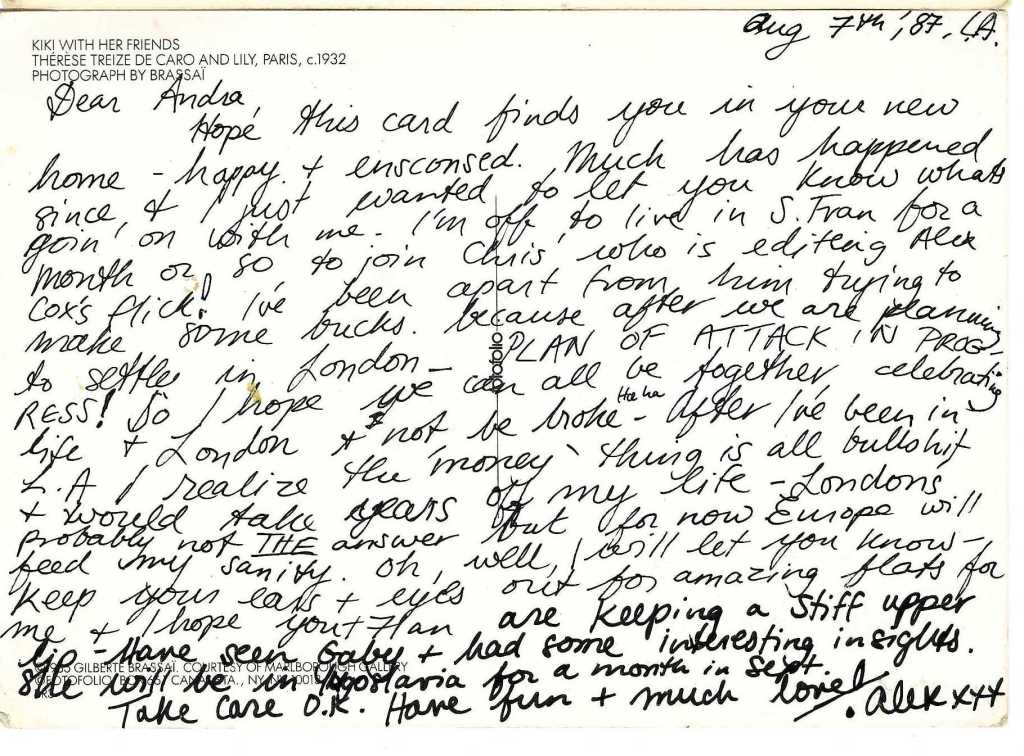 Aug 7th, '87, L.A.
KIKI WITH HER FRIENDS
THÉRÈSE TREIZE DE CARO AND LILY, PARIS, c.1932
PHOTOGRAPH BY BRASSAÏ
Dear Andra,
Hope this card finds you in your new
home - happy + ensconsed. Much has happened
since, & I just wanted to let you know whats
goin' on with me - I'm off to live in S.Fran for a
month or so to join Chris who is editing Alex
Cox's flick! I've been apart from him trying to
make some bucks. because after we are planning
to settle in London - PLAN OF ATTACK IN PROG-
RESS! So I hope we can all be together celebrating
life & London & not be broke - Ha ha After I've been in
L.A I realize the 'money' thing is all bullshit
+ would take years off my life - Londons
probably not THE answer but for now Europe will
feed my sanity. Oh, well, I will let you know -
keep your ears + eyes out for amazing flats for
me + I hope you + Han are keeping a stiff upper
lip - Have seen Gaby + had some interesting insights.
She will be in for a month in Sept
GILBERTE BRASSAÏ. COURTESY OF MARLBOROUGH GALLERY
Take care O.K. Have fun + much love! Alex xxx
otofolio